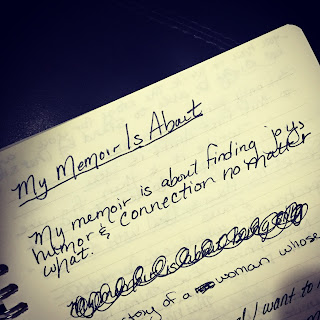 My Memoir Is About
My memoir is about finding joys
humor & connection no matter
what.
story of a woman whose
I want to